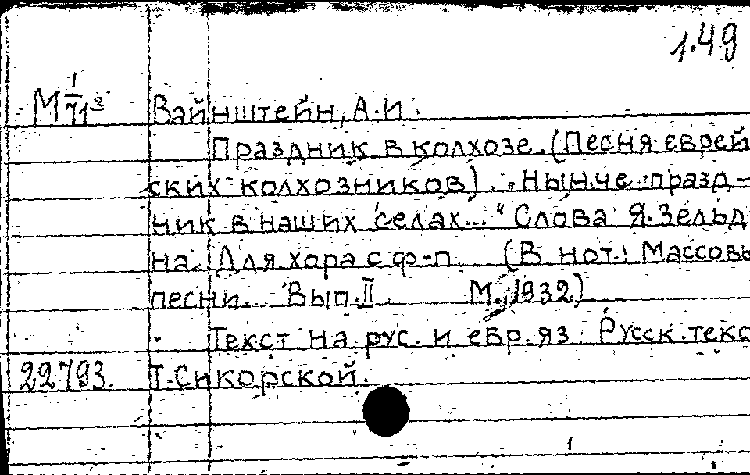 1.49
М 1/71з Вайнштейн, А.И.
Праздник в колхозе. (Песня еврей
ских колхозников). „Нынче празд-
ник в наших селах..." Слова Я. Зельд
на. Для хора с ф-п. (В нот.: Массовы
песни. Вып. II. М., 1932)
Текст на рус. и евр. яз. Русск. текс
22793. Т. Сикорской.